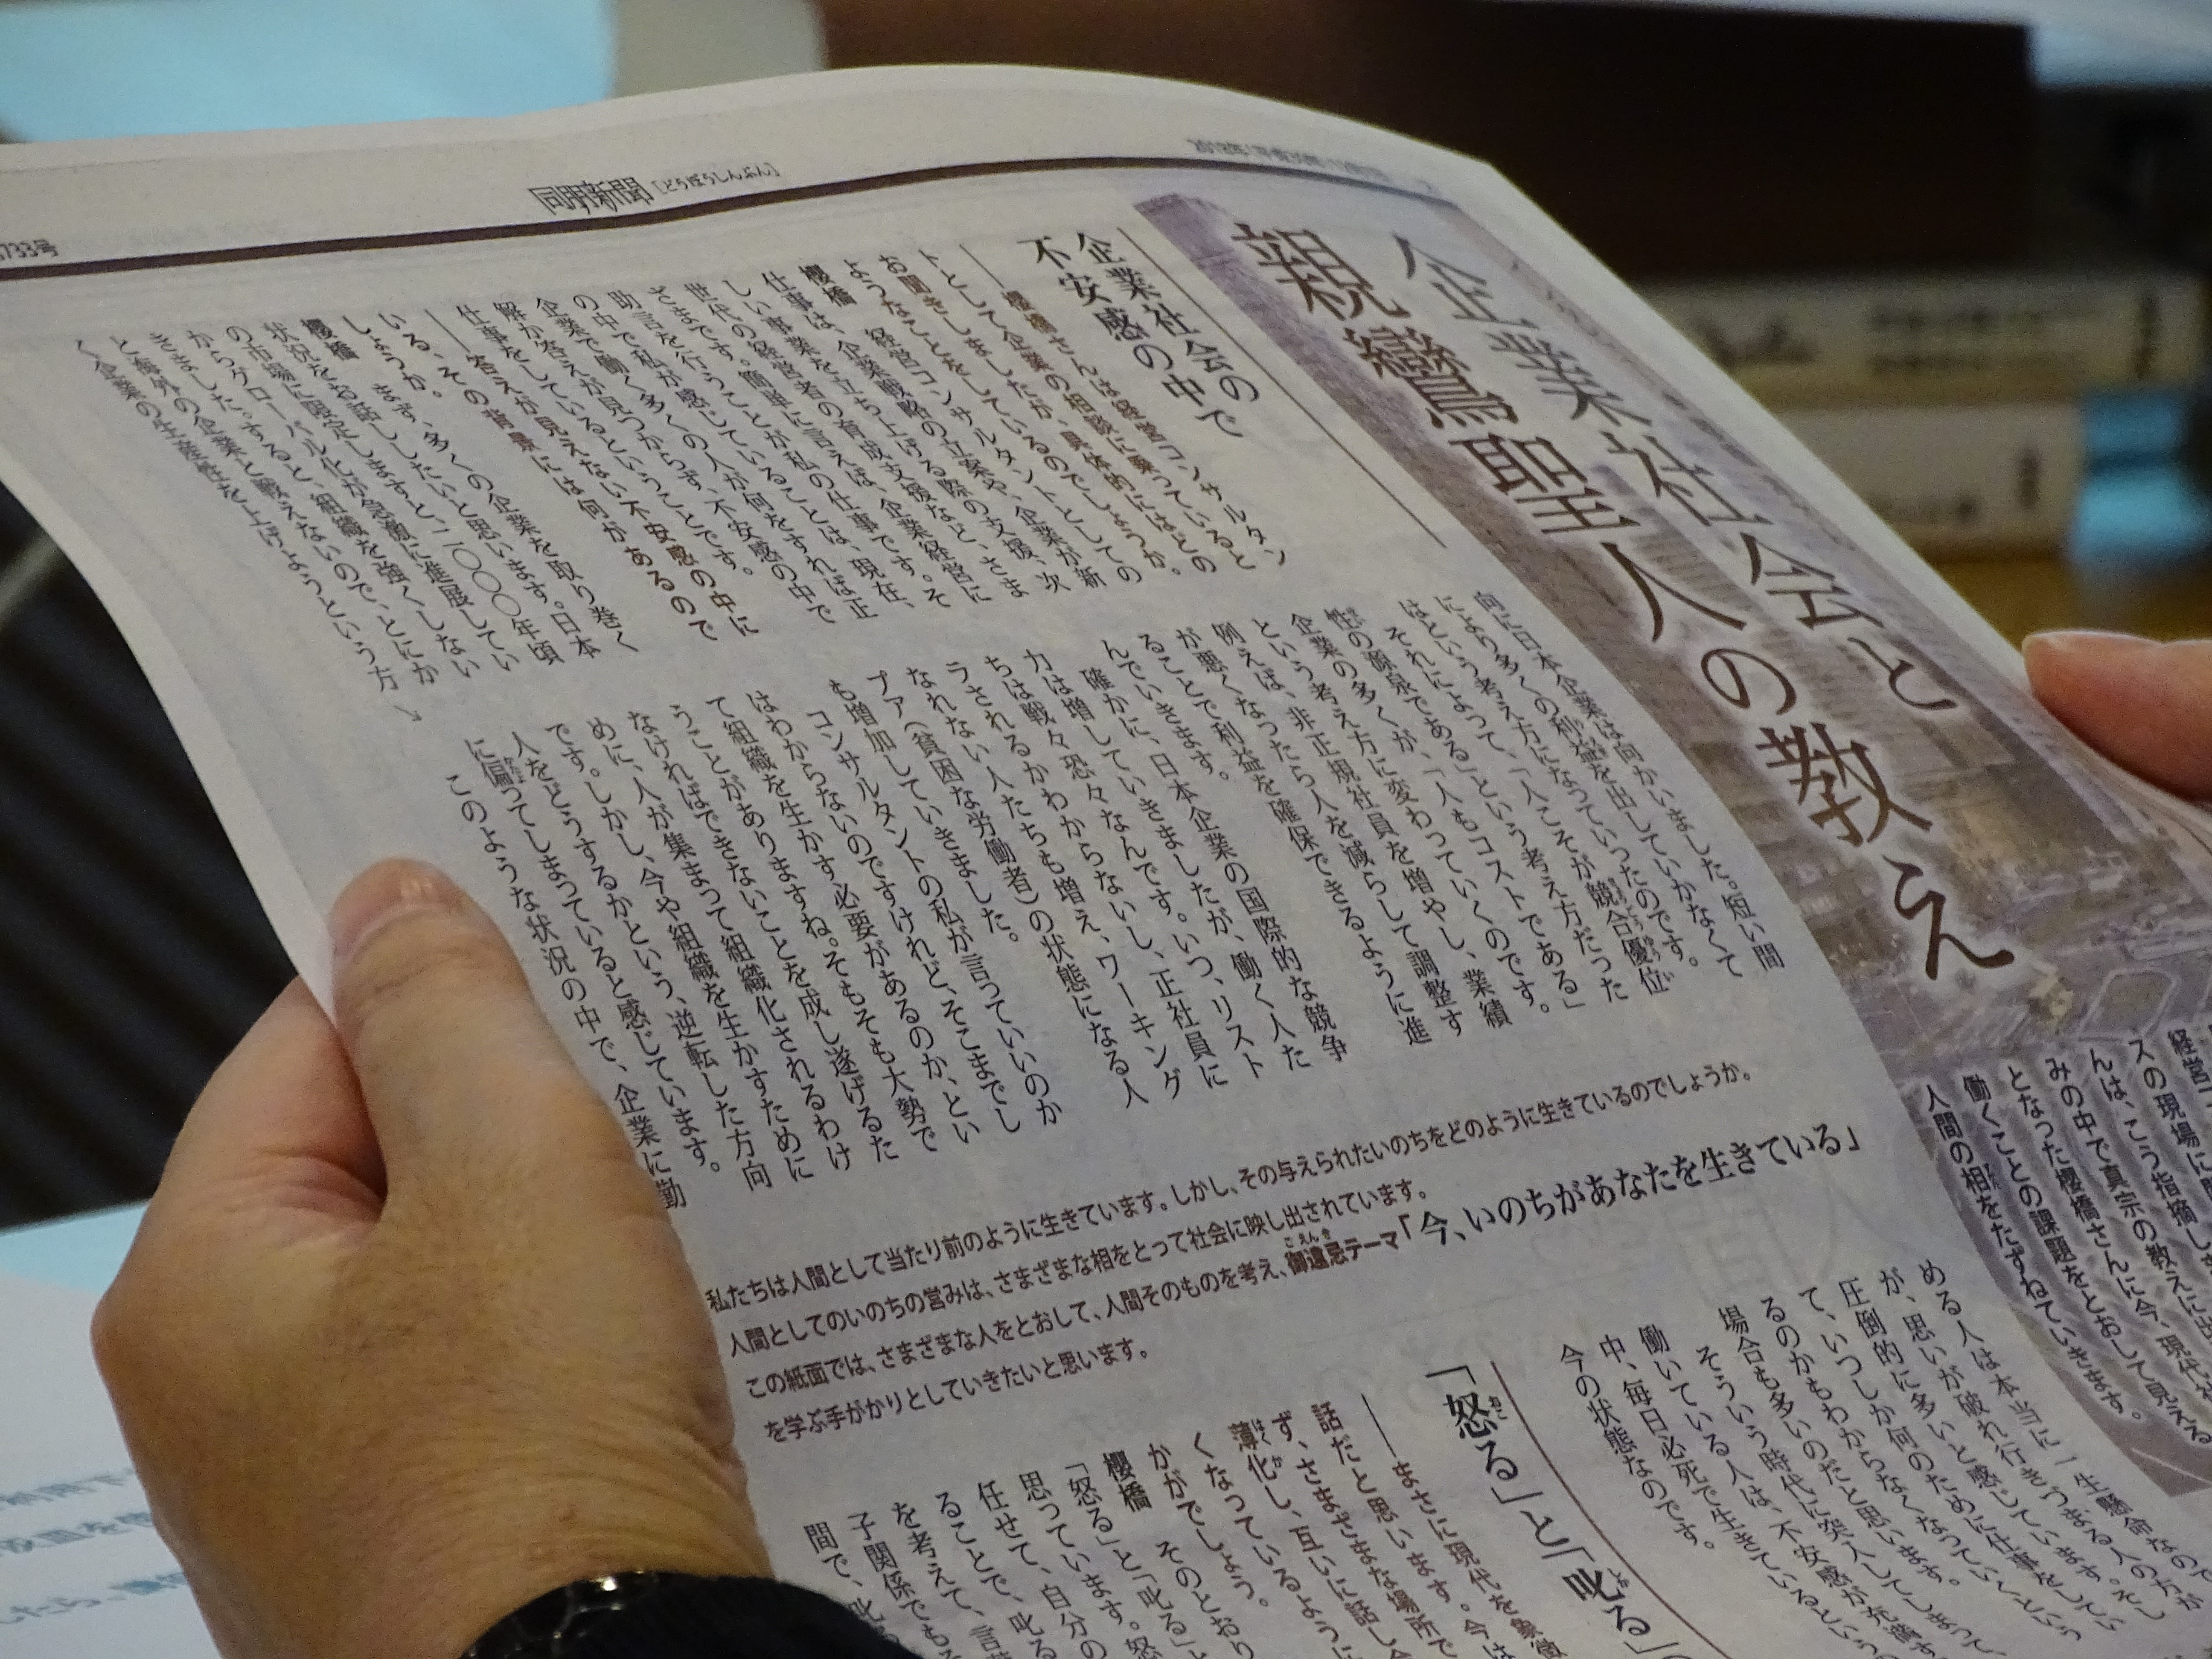 733号
同朋新聞［どうぼうしんぶん］
企業社会と
親鸞聖人の教え
んは、こう指摘し
みの中で真宗の教えに出
となった櫻橋さんに今、現代社
働くことの課題をとおして見える
人間の相をたずねていきます。
企業社会の
不安感の中で
――櫻橋さんは経営コンサルタン
トとして企業の相談に乗っていると
お聞きしましたが、具体的にはどの
ようなことをしているのでしょうか。
櫻橋　経営コンサルタントとしての
仕事は、企業戦略の立案や、企業が新
しい事業を立ち上げる際の支援、次
世代の経営者の育成支援など、さま
ざまです。簡単に言えば、企業経営に
助言を行うことが私の仕事です。そ
の中で私が感じていることは、現在、
企業で働く多くの人が何をすれば正
解か答えが見つからず、不安感の中で
仕事をしているということです。
――答えが見えない不安感の中に
いる、その背景には何があるので
しょうか。
櫻橋　まず、多くの企業を取り巻く
状況をお話ししたいと思います。日本
の市場に限定しますと、二〇〇〇年頃
からグローバル化が急速に進展してい
きました。すると、組織を強くしない
と海外の企業と戦えないので、とにか
く企業の生産性を上げようという方
向に日本企業は向かいました。短い間
により多くの利益を出していかなくて
はという考え方になっていったのです。
それによって、「人こそが競合優位
性の源泉である」という考え方だった
企業の多くが、「人もコストである」
という考え方に変わっていくのです。
例えば、非正規社員を増やし、業績
が悪くなったら人を減らして調整す
ることで利益を確保できるように進
んでいきます。
確かに、日本企業の国際的な競争
力は増していきましたが、働く人た
ちは戦々恐々なんです。いつ、リスト
ラされるかわからないし、正社員に
なれない人たちも増え、ワーキング
プア（貧困な労働者）の状態になる人
も増加していきました。
コンサルタントの私が言っていいのか
はわからないのですけれど、そこまでし
て組織を生かす必要があるのか、とい
うことがありますね。そもそも大勢で
なければできないことを成し遂げるた
めに、人が集まって組織化されるわけ
です。しかし、今や組織を生かすために
人をどうするかという、逆転した方向
に偏ってしまっていると感じています。
このような状況の中で、企業に勤
める人は本当に一生懸命なので
が、思いが破れ行きづまる人の方が
圧倒的に多いと感じています。そし
て、いつしか何のために仕事をしてい
るのかもわからなくなっていくという
場合も多いのだと思います。
そういう時代に突入してしまって、
働いている人は、不安感が充満す
中、毎日必死で生きているという
今の状態なのです。
私たちは人間として当たり前のように生きています。しかし、その与えられたいのちをどのように生きているのでしょうか。
人間としてのいのちの営みは、さまざまな相をとって社会に映し出されています。
この紙面では、さまざまな人をとおして、人間そのものを考え、御遠忌テーマ「今、いのちがあなたを生きている」
を学ぶ手がかりとしていきたいと思います。
「怒る」と「叱る」
――まさに現代を象徴
話だと思います。今は
ず、さまざまな場所で
薄化し、互いに話し合
くなっているように
かがでしょう。
櫻橋　そのとおり
「怒る」と「叱る」と
思っています。怒
任せて、自分の
ることで、叱る
を考えて、言
子関係でもそ
間で、叱